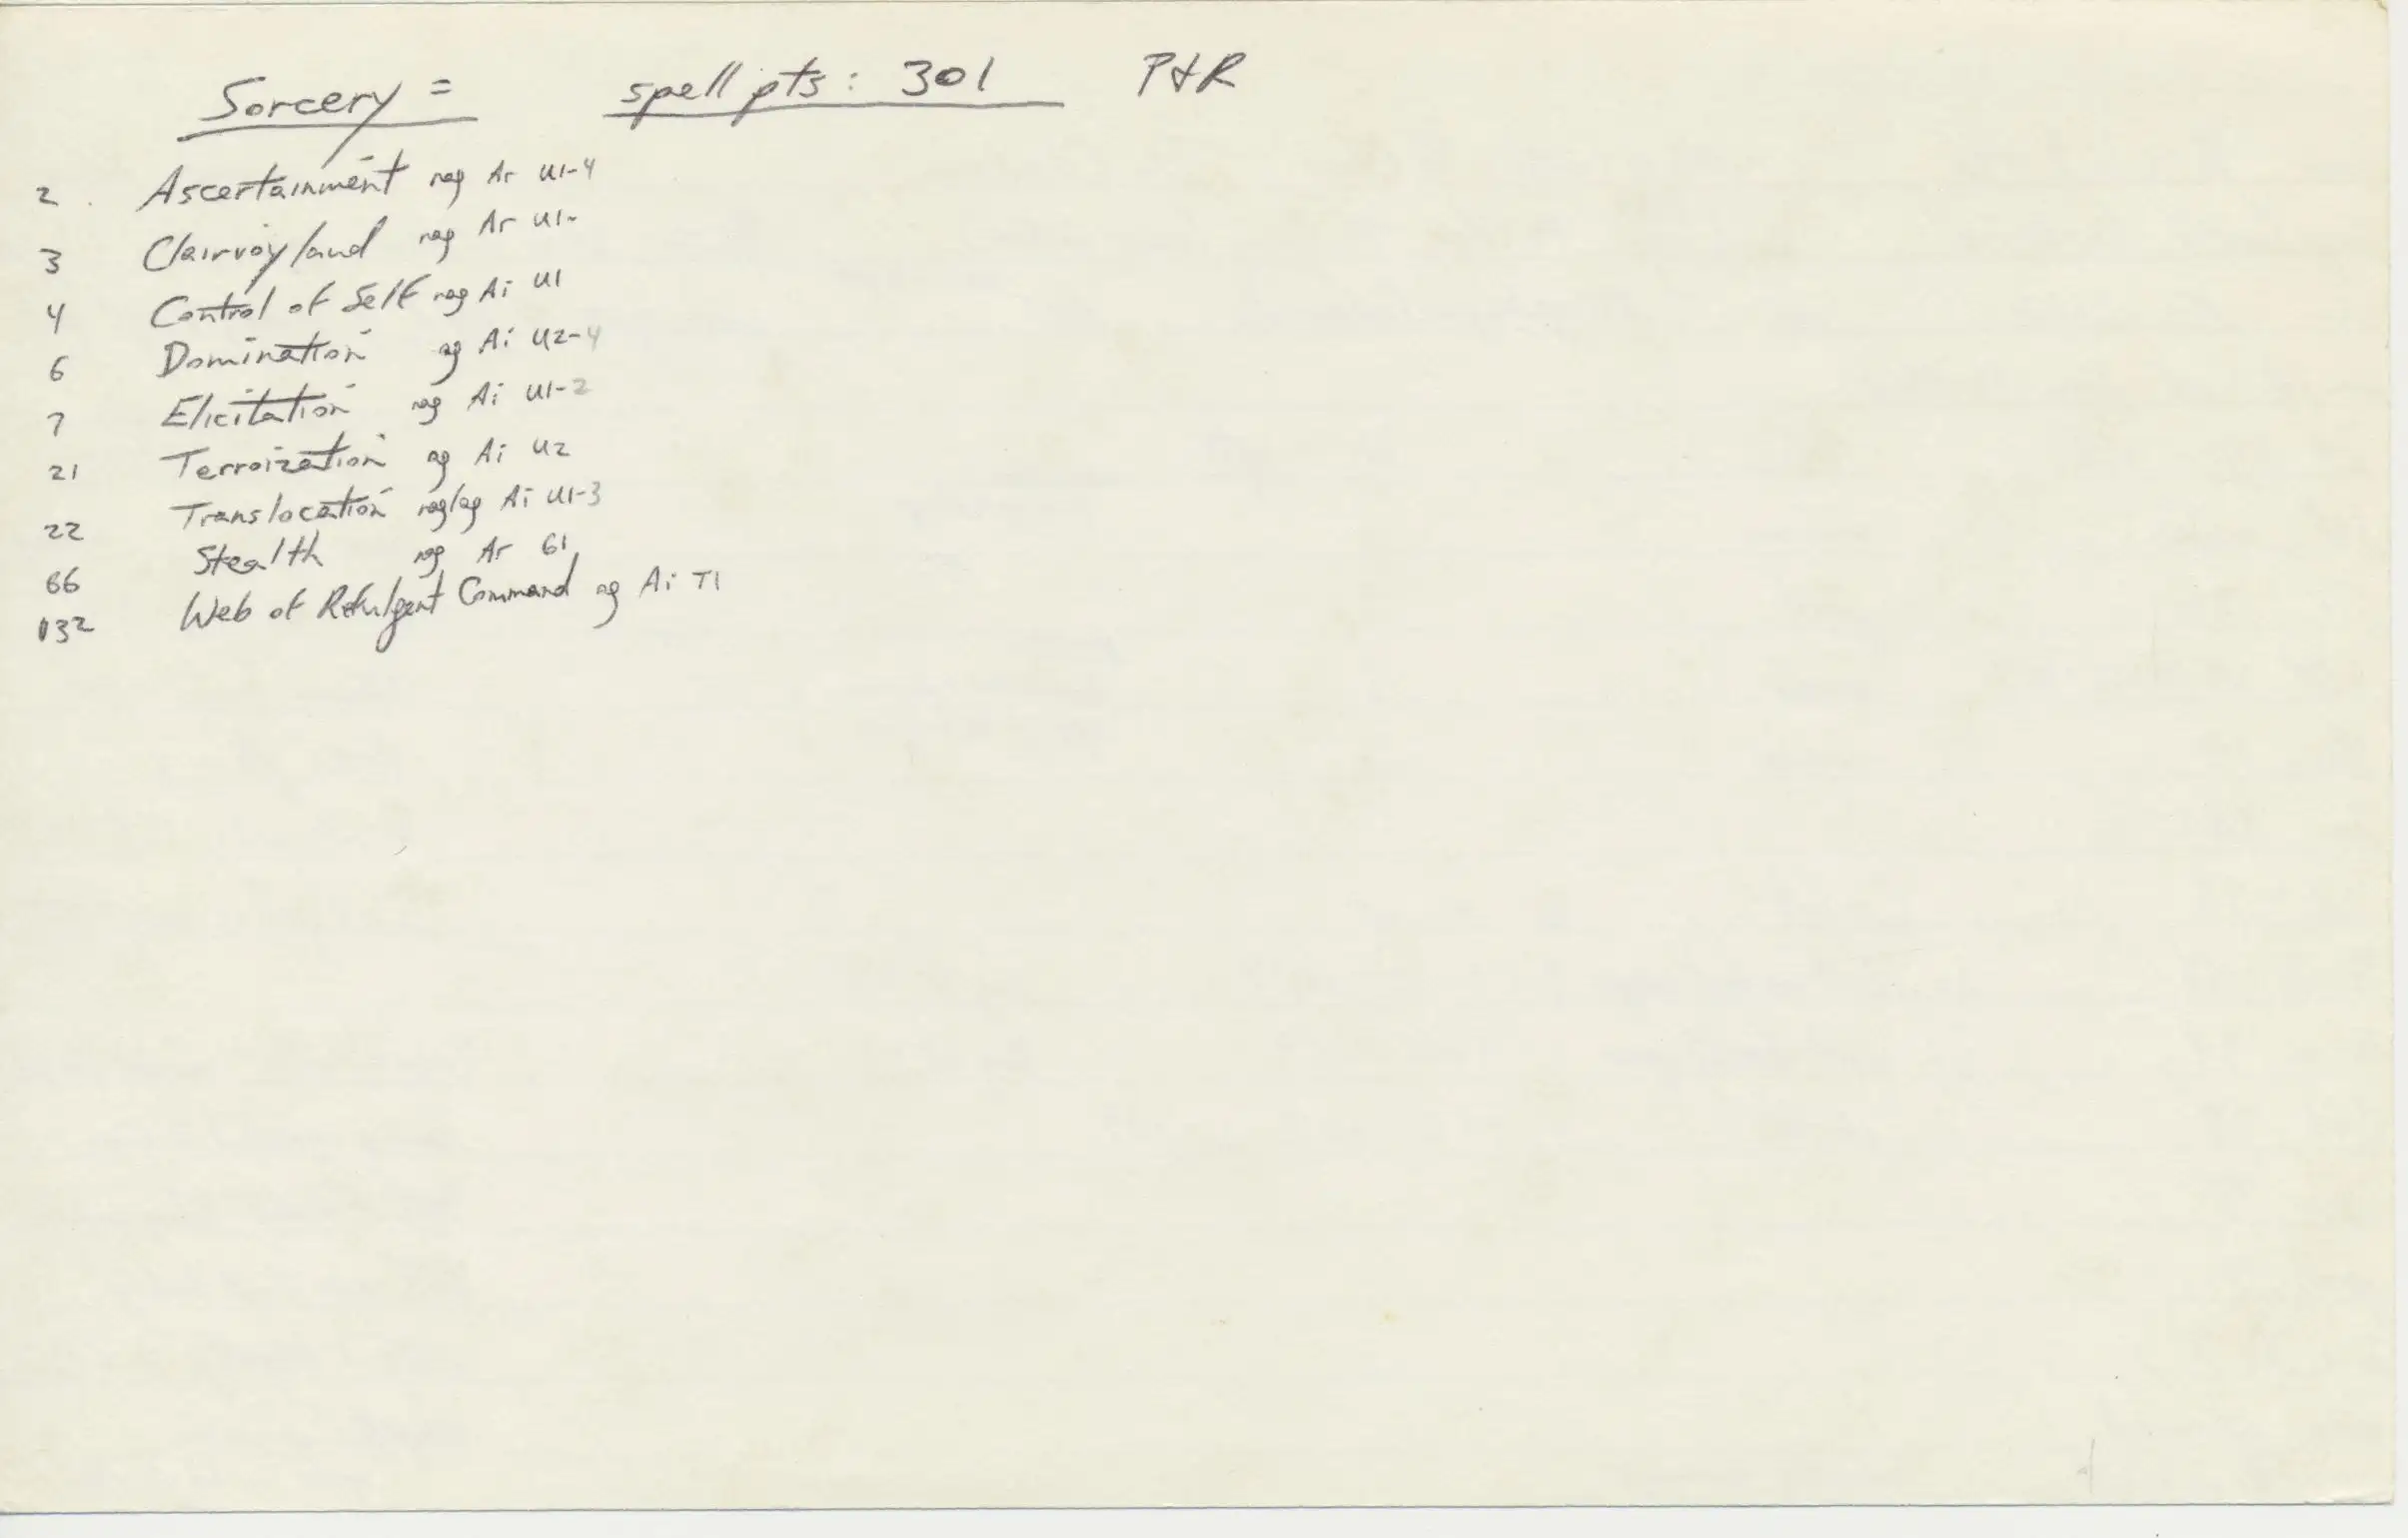 Sorcery = spell pts: 301 P&R
2. Ascertainment nag Ar U1-4
3 Clairvoy/aud nag Ar U1-
4 Control of Self nag Ai U1
6 Domination ag Ai U2-4
7 Elicitation nag Ai U1-2
21 Terroization ag Ai U2
22 Translocation nag/ag Ai U1-3
66 Stealth nag Ar G1
132 Web of Refulgent Command ag Ai T1